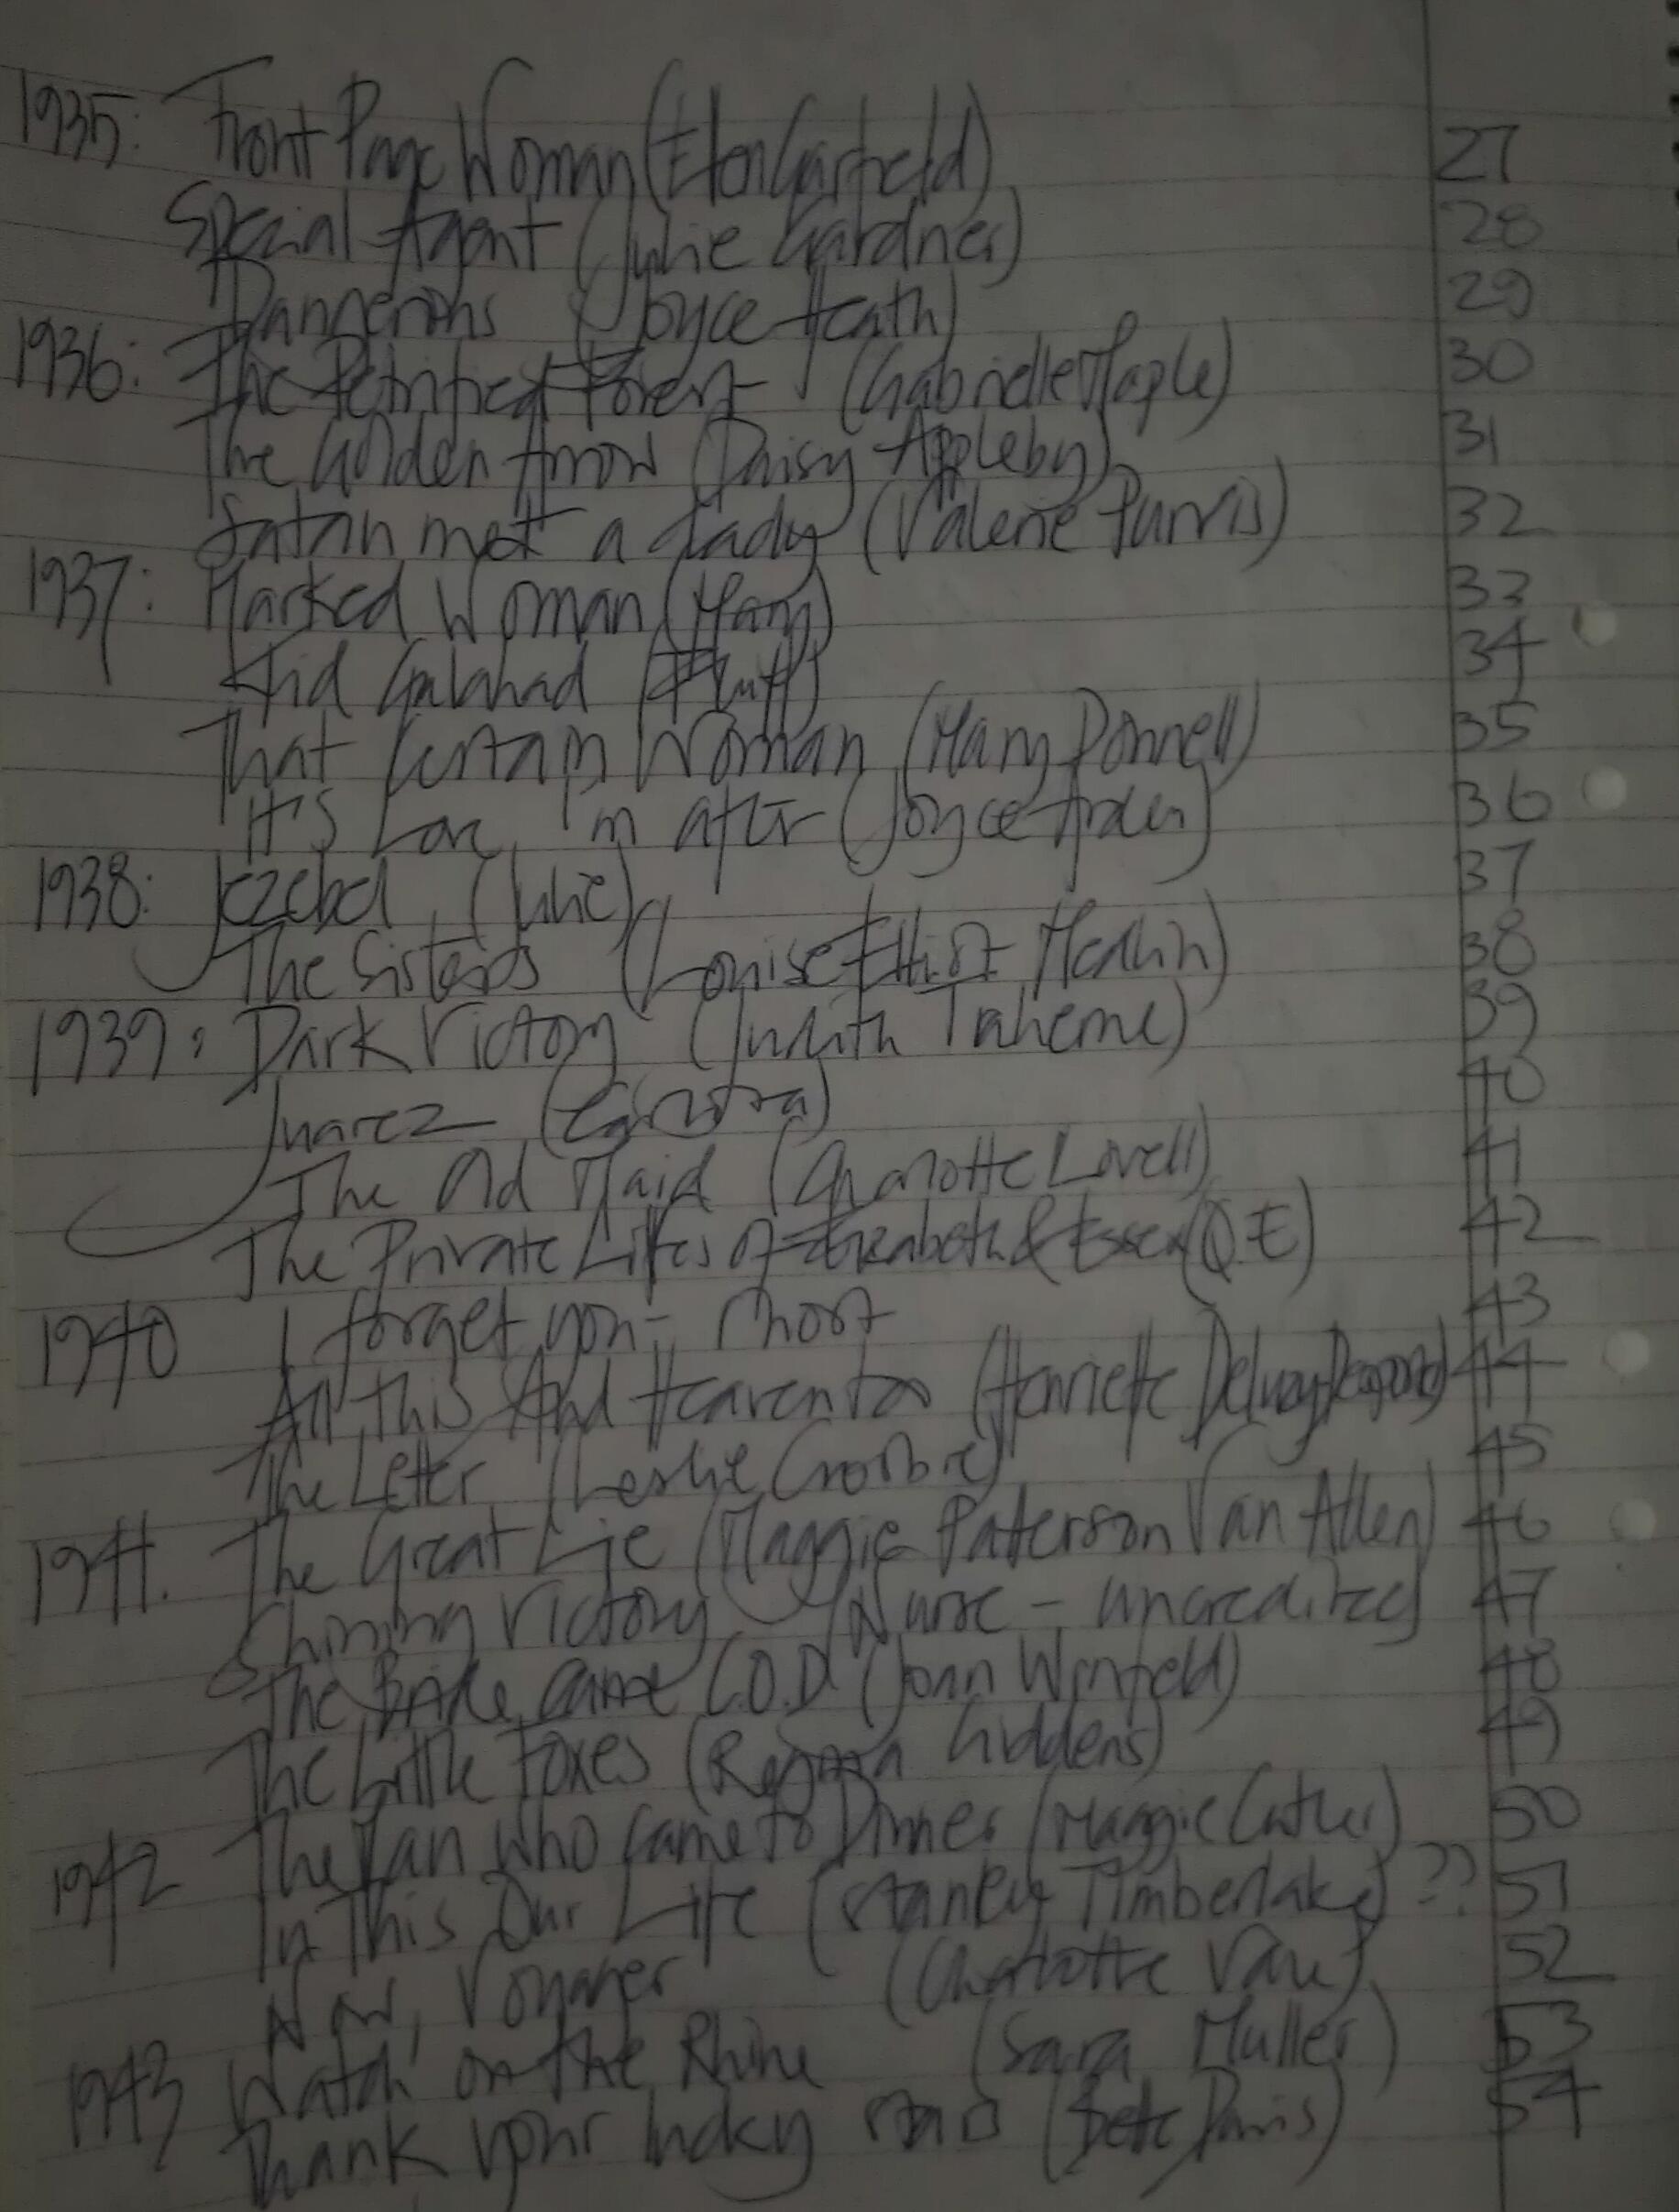 1935: Front Page Woman (Ellen Garfield) 27
Special Agent (Julie Gardner) 28
Dangerous (Joyce Heath) 29
1936: The Petrified Forest (Gabrielle Maple) 30
The Golden Arrow (Daisy Appleby) 31
Satan met a Lady (Valerie Purvis) 32
1937: Marked Woman (Mary) 33
Kid Galahad (Fluff) 34
That Certain Woman (Mary Donnell) 35
It's Love I'm after (Joyce Arden) 36
1938: Jezebel (Julie) 37
The Sisters (Louise Elliot Medlin) 38
1939: Dark Victory (Judith Traherne) 39
Juarez (Carlotta) 40
The Old Maid (Charlotte Lovell) 41
The Private Lifes of Elizabeth & Essex (Q.E) 42
1940 I forget you - short 43
All This And Heaven too (Henriette 44
The Letter (Leslie Crosbie) 45
1941. The Great Lie (Maggie Paterson Van Allen) 46
Shining Victory (Nurse - uncredited) 47
The Bride Came C.O.D (Joan Winfield) 48
The Little Foxes (Regina Giddens) 49
1942 The Man Who Came to Dinner (Maggie Cutler) 50
In This Our Life (Stanley Timberlake) ?? 51
Now, Voyager (Charlotte Vale) 52
1943 Watch on the Rhine (Sara Muller) 53
Thank your lucky stars (Bette Davis) 54